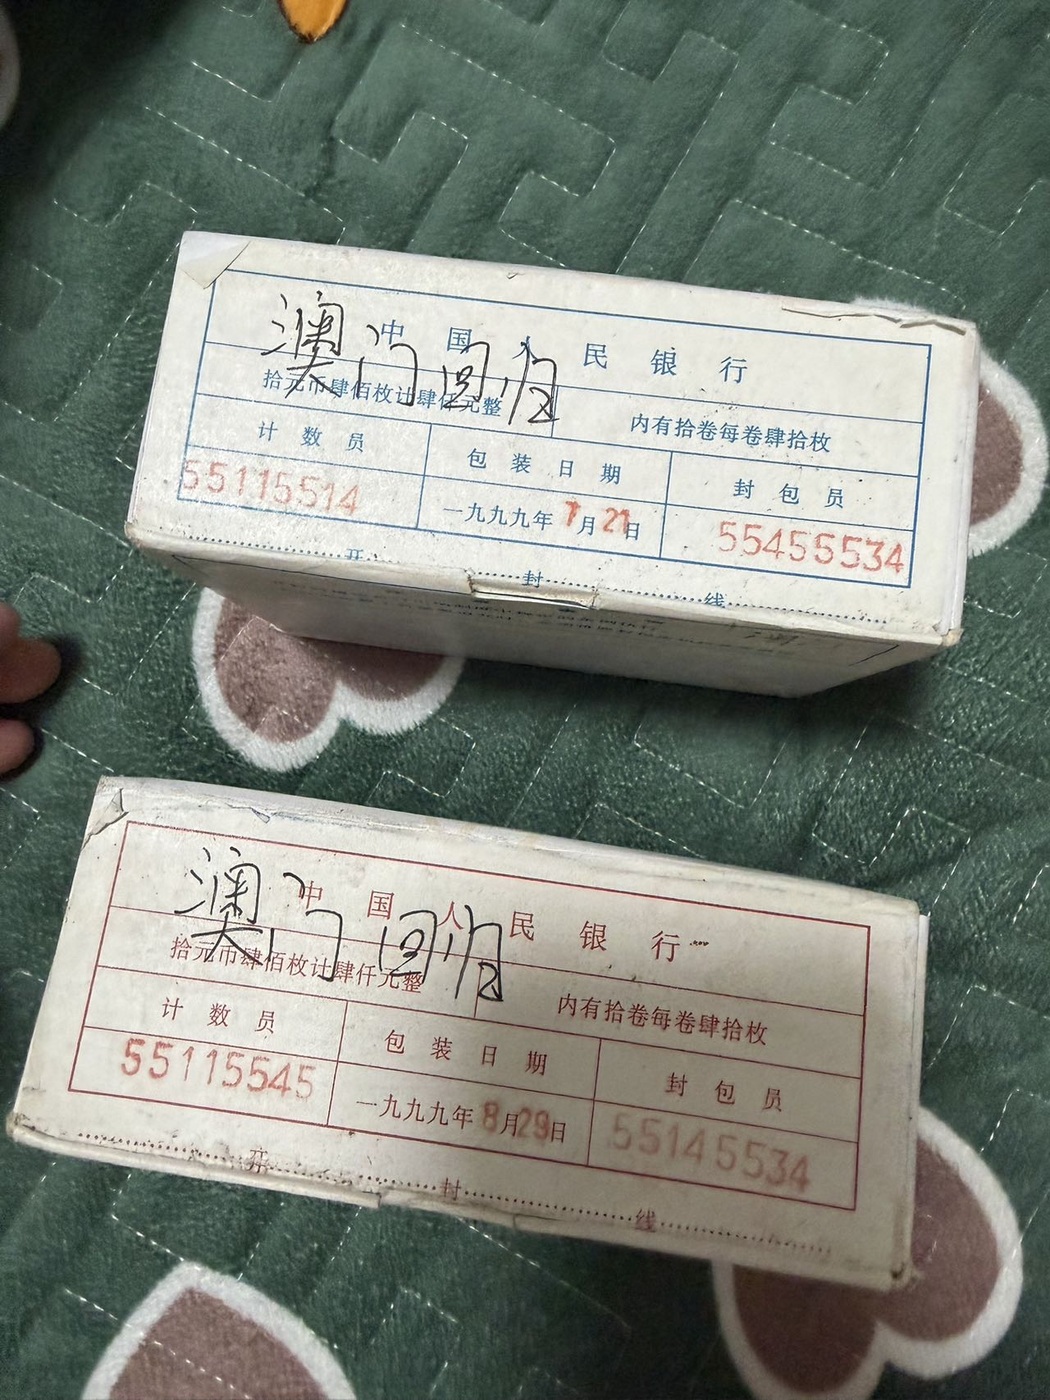 澳门回归
中国人民银行
拾元币肆佰枚计肆仟元整
内有拾卷每卷肆拾枚
计数员
包装日期
封包员
55115514
一九九九年7月21日
55455534
开封线
澳门回归
中国人民银行
拾元币肆佰枚计肆仟元整
内有拾卷每卷肆拾枚
计数员
包装日期
封包员
55115545
一九九九年8月29日
55145534
开封线